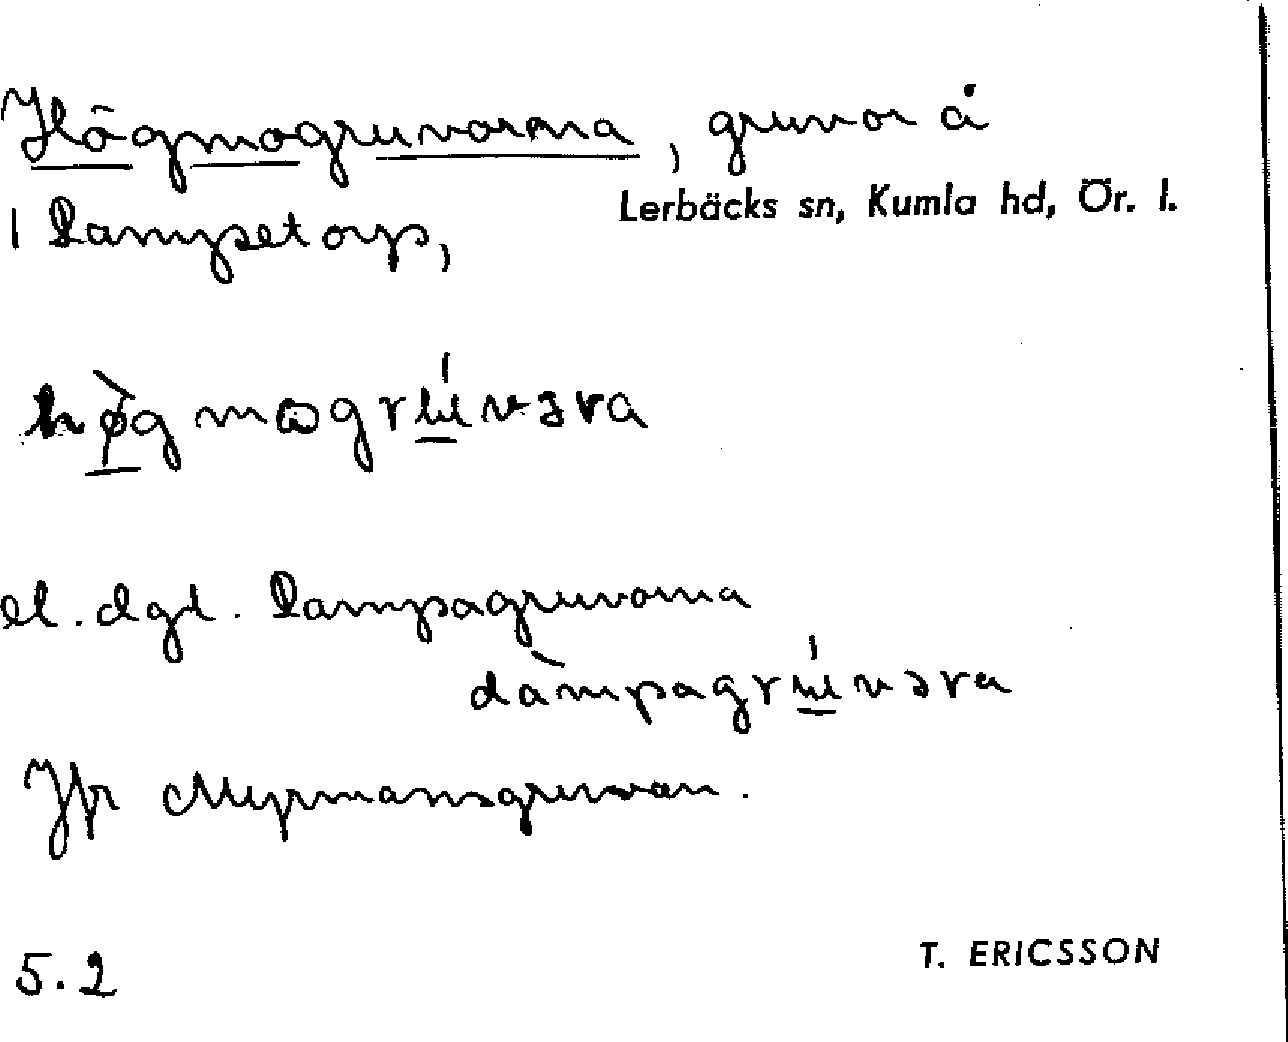 Högmogruvorna, gruvor å
Lerbäcks sn, Kumla hd, Ör. l.
1 Dampetorp,
hø̀gmαgrúvəra
el. dgl. Dampagruvorna
dàmpagrúvəra
Jfr Myrmansgruvan.
5.2
T. ERICSSON